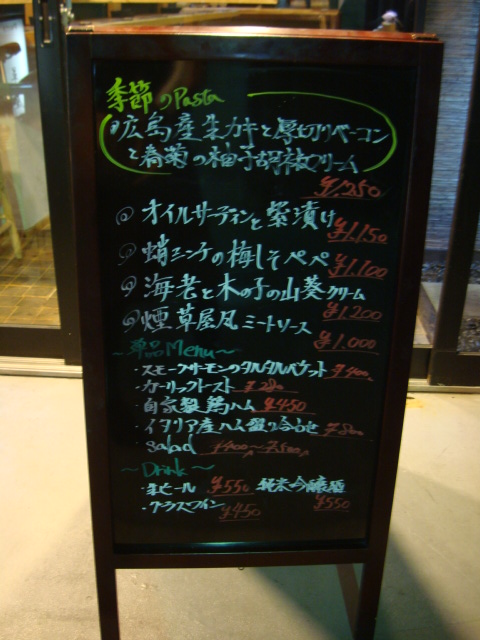 季節のPasta
広島産生カキと厚切りベーコン
と春菊の柚子胡椒クリーム
¥1,250
オイルサーディンと柴漬け ¥1,150
蛸ミンチの梅しそペペ ¥1,100
海老と木の子の山葵クリーム ¥1,200
煙草屋風ミートソース ¥1,000
~単品Menu~
・スモークサーモンのタルタルバゲット ¥400
・ガーリックトースト ¥280
・自家製鶏ハム ¥450
・イタリア産ハム盛り合わせ ¥800
・Salad ¥400~¥800
~Drink~
・生ビール ¥550 純米吟醸酒 ¥550
・グラスワイン ¥450